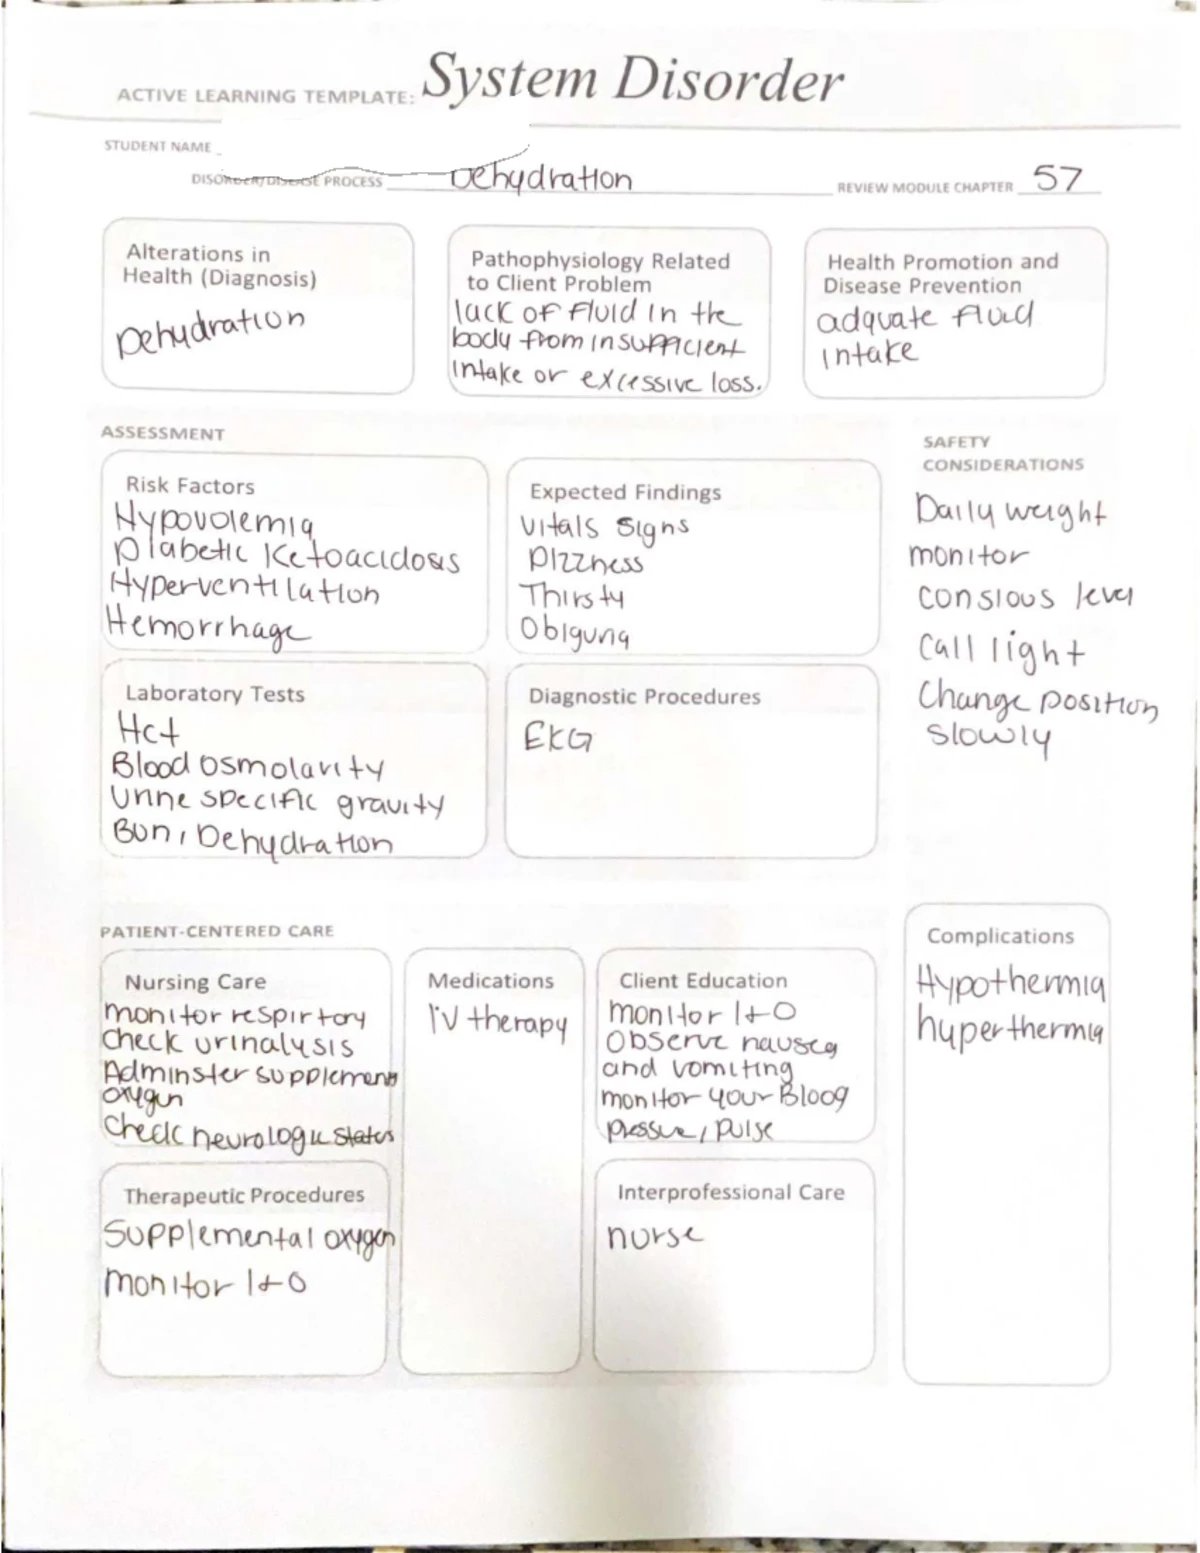 ACTIVE LEARNING TEMPLATE: System Disorder
STUDENT NAME
DISORDER/DISEASE PROCESS Dehydration
REVIEW MODULE CHAPTER 57
Alterations in
Health (Diagnosis)
Dehydration
Pathophysiology Related
to Client Problem
lack of fluid in the
body from insufficient
intake or excessive loss.
Health Promotion and
Disease Prevention
adquate fluid
intake
ASSESSMENT
Risk Factors
Hypovolemia
Diabetic Ketoacidosis
Hyperventilation
Hemorrhage
Expected Findings
Vitals signs
Dizzness
Thirsty
Obliguna
SAFETY
CONSIDERATIONS
Daily weight
monitor
consious level
Call light
Change position
slowly
Laboratory Tests
Hct
Blood osmolarity
Urine specific gravity
Bun, Dehydration
Diagnostic Procedures
EKG
PATIENT-CENTERED CARE
Nursing Care
monitor respirtory
Check urinalysis
Adminster supplement
oxygen
Check neurologic status
Medications
IV therapy
Client Education
monitor I+O
Observe nausea
and vomiting
monitor your Blood
pressure, pulse
Complications
Hypothermia
hyperthermia
Therapeutic Procedures
Supplemental oxygen
monitor I+O
Interprofessional Care
nurse